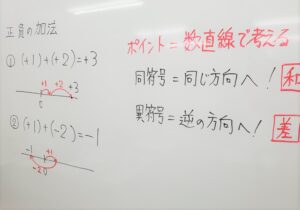 正負の加法
① (+1)+(+2)=+3
+1 +2 +3
0
② (+1)+(-2)=-1
-1 +1
-2 0
ポイント=数直線で考える
同符号=同じ方向へ! 和
異符号=逆の方向へ! 差